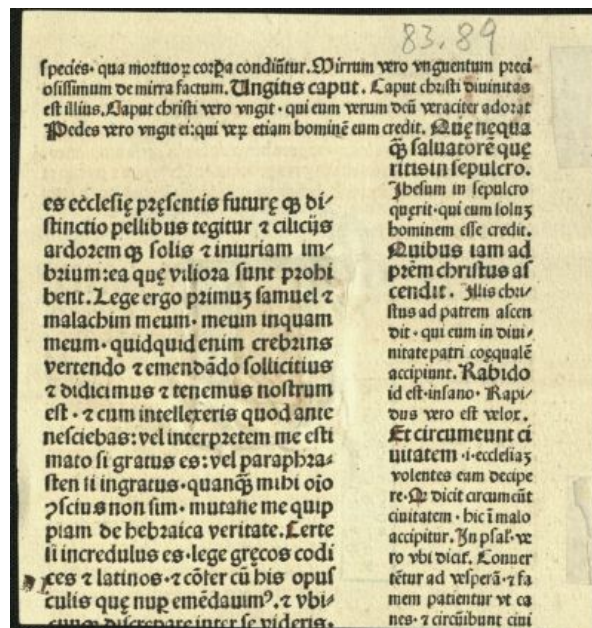 83.89
species· qua mortuoꝝ corꝑa condiũtur. Mirrum vero vnguentum preci
osissimum de mirra factum. Ungitis caput. Caput christi diuinitas
est illius. Caput christi vero vngit · qui eum verum deũ veraciter adorat
Pedes vero vngit ei: qui veꝝ etiam hominẽ eum credit. Quę nequa
es ecclesię pręsentis futurę ꝙ di⸗
stinctio pellibus tegitur ⁊ cilicijs
ardorem ꝙ solis ⁊ iniuriam im⸗
brium: ea quę viliora sunt prohi
bent. Lege ergo primuꝫ samuel ⁊
malachim meum· meum inquam
meum · quidquid enim crebrius
vertendo ⁊ emendãdo sollicitius
⁊ didicimus ⁊ tenemus nostrum
est · ⁊ cum intellexeris quod ante
nesciebas: vel interpretem me esti
mato si gratus es: vel paraphra⸗
sten si ingratus· quanꝙ̃ mihi oĩo
ꝯscius non sim· mutasse me quip
piam de hebraica veritate. Certe
si incredulus es· lege gręcos codi
ces ⁊ latinos· ⁊ cõfer cũ his opus
culis quę nuꝑ emẽdauimꝰ. ⁊ vbi⸗
cunꝙ discrepare inter se videris·
ꝙ̃ saluatorẽ quę
ritis in sepulcro.
Jhesum in sepulcro
quęrit· qui eum soluꝫ
hominem esse credit.
Quibus iam ad
prẽm christus as
cendit. Jllis chri⸗
stus ad patrem ascen
dit · qui eum in diui⸗
nitate patri coęqualẽ
accipiunt. Rabido
id est· insano· Rapi⸗
dus vero est velox.
Et circumeunt ci
uitatem ·i· ecclesiaꝫ
volentes eam decipe
re· Q dicit circumeũt
ciuitatem · hic ĩ malo
accipitur. Jn psal· ve
ro vbi dicit̃. Conuer
tẽtur ad vesperã· ⁊ fa
mem patientur vt ca
nes· ⁊ circũibunt ciui